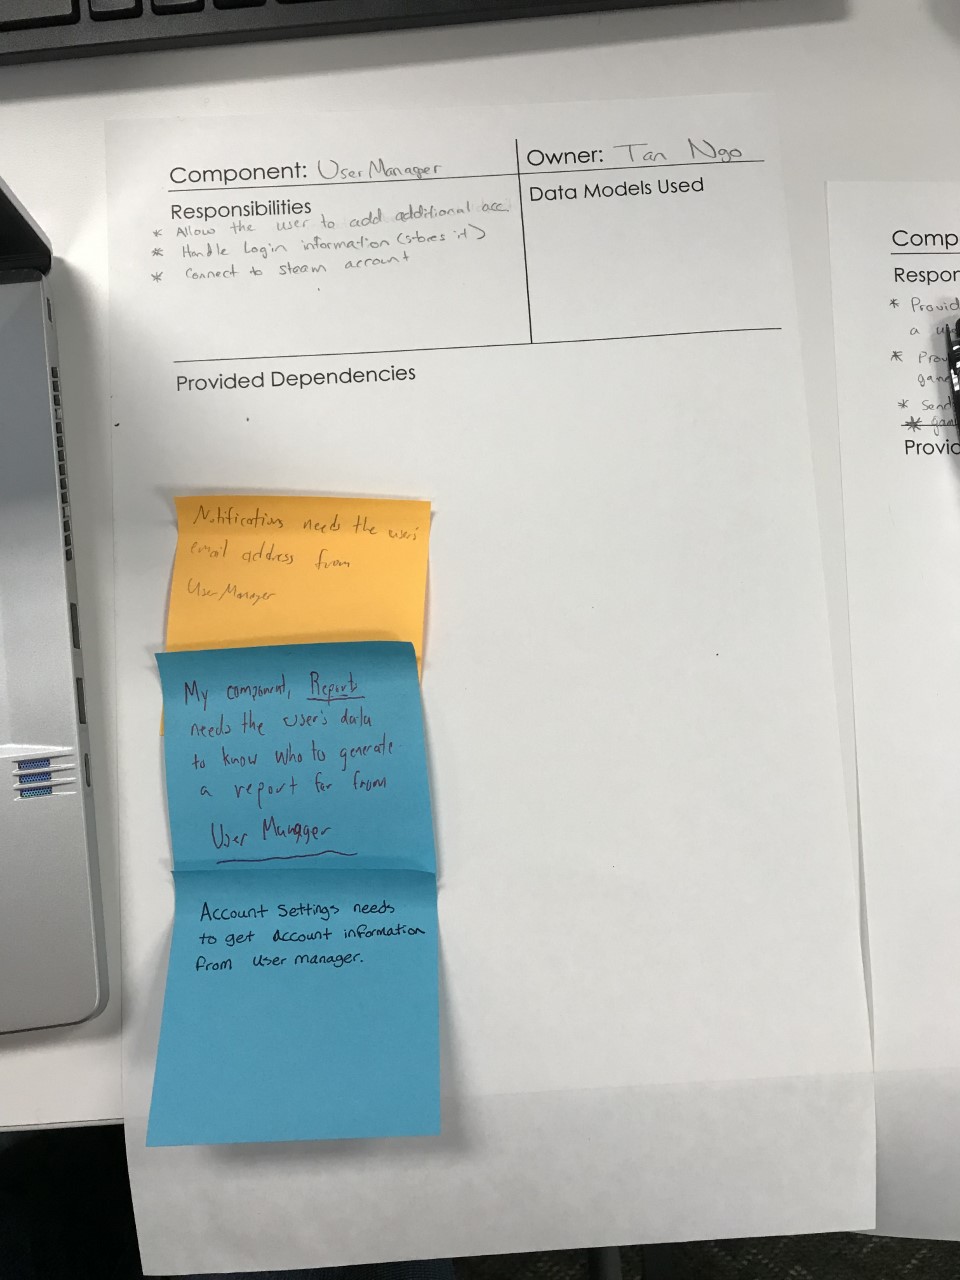 Component: User Manager
Owner: Tan Ngo
Responsibilities
* Allow the user to add additional acc.
* Handle Login information (stores it)
* Connect to steam account
Data Models Used
Provided Dependencies
Notifications needs the user's
email address from
User Manager
My component, Reports
needs the user's data
to know who to generate
a report for from
User Manager
Account Settings needs
to get account information
from user manager.
Comp
Respon
* Provid
a
* Prov
gam
* Send
* gam
Provid